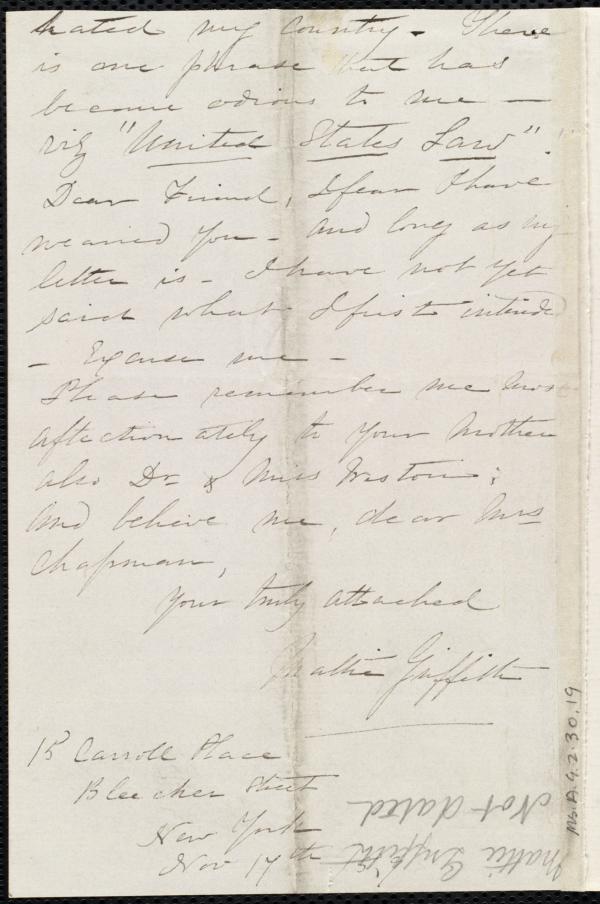 hated my country. There
is one phrase that has
become odious to me —
viz "United States Law".
Dear Friend, I fear I have
wearied you - And long as my
letter is - I have not yet
said what I first intended
- Excuse me -
Please remember me most
affectionately to your Mother
also Dr & Miss Weston;
And believe me, dear Mrs
Chapman,
Your truly attached
Mattie Griffith
15 Carroll Place
Bleecker Street
New York
Nov 17th
Mattie Griffith
Not dated
Ms.A.9.2.30.19